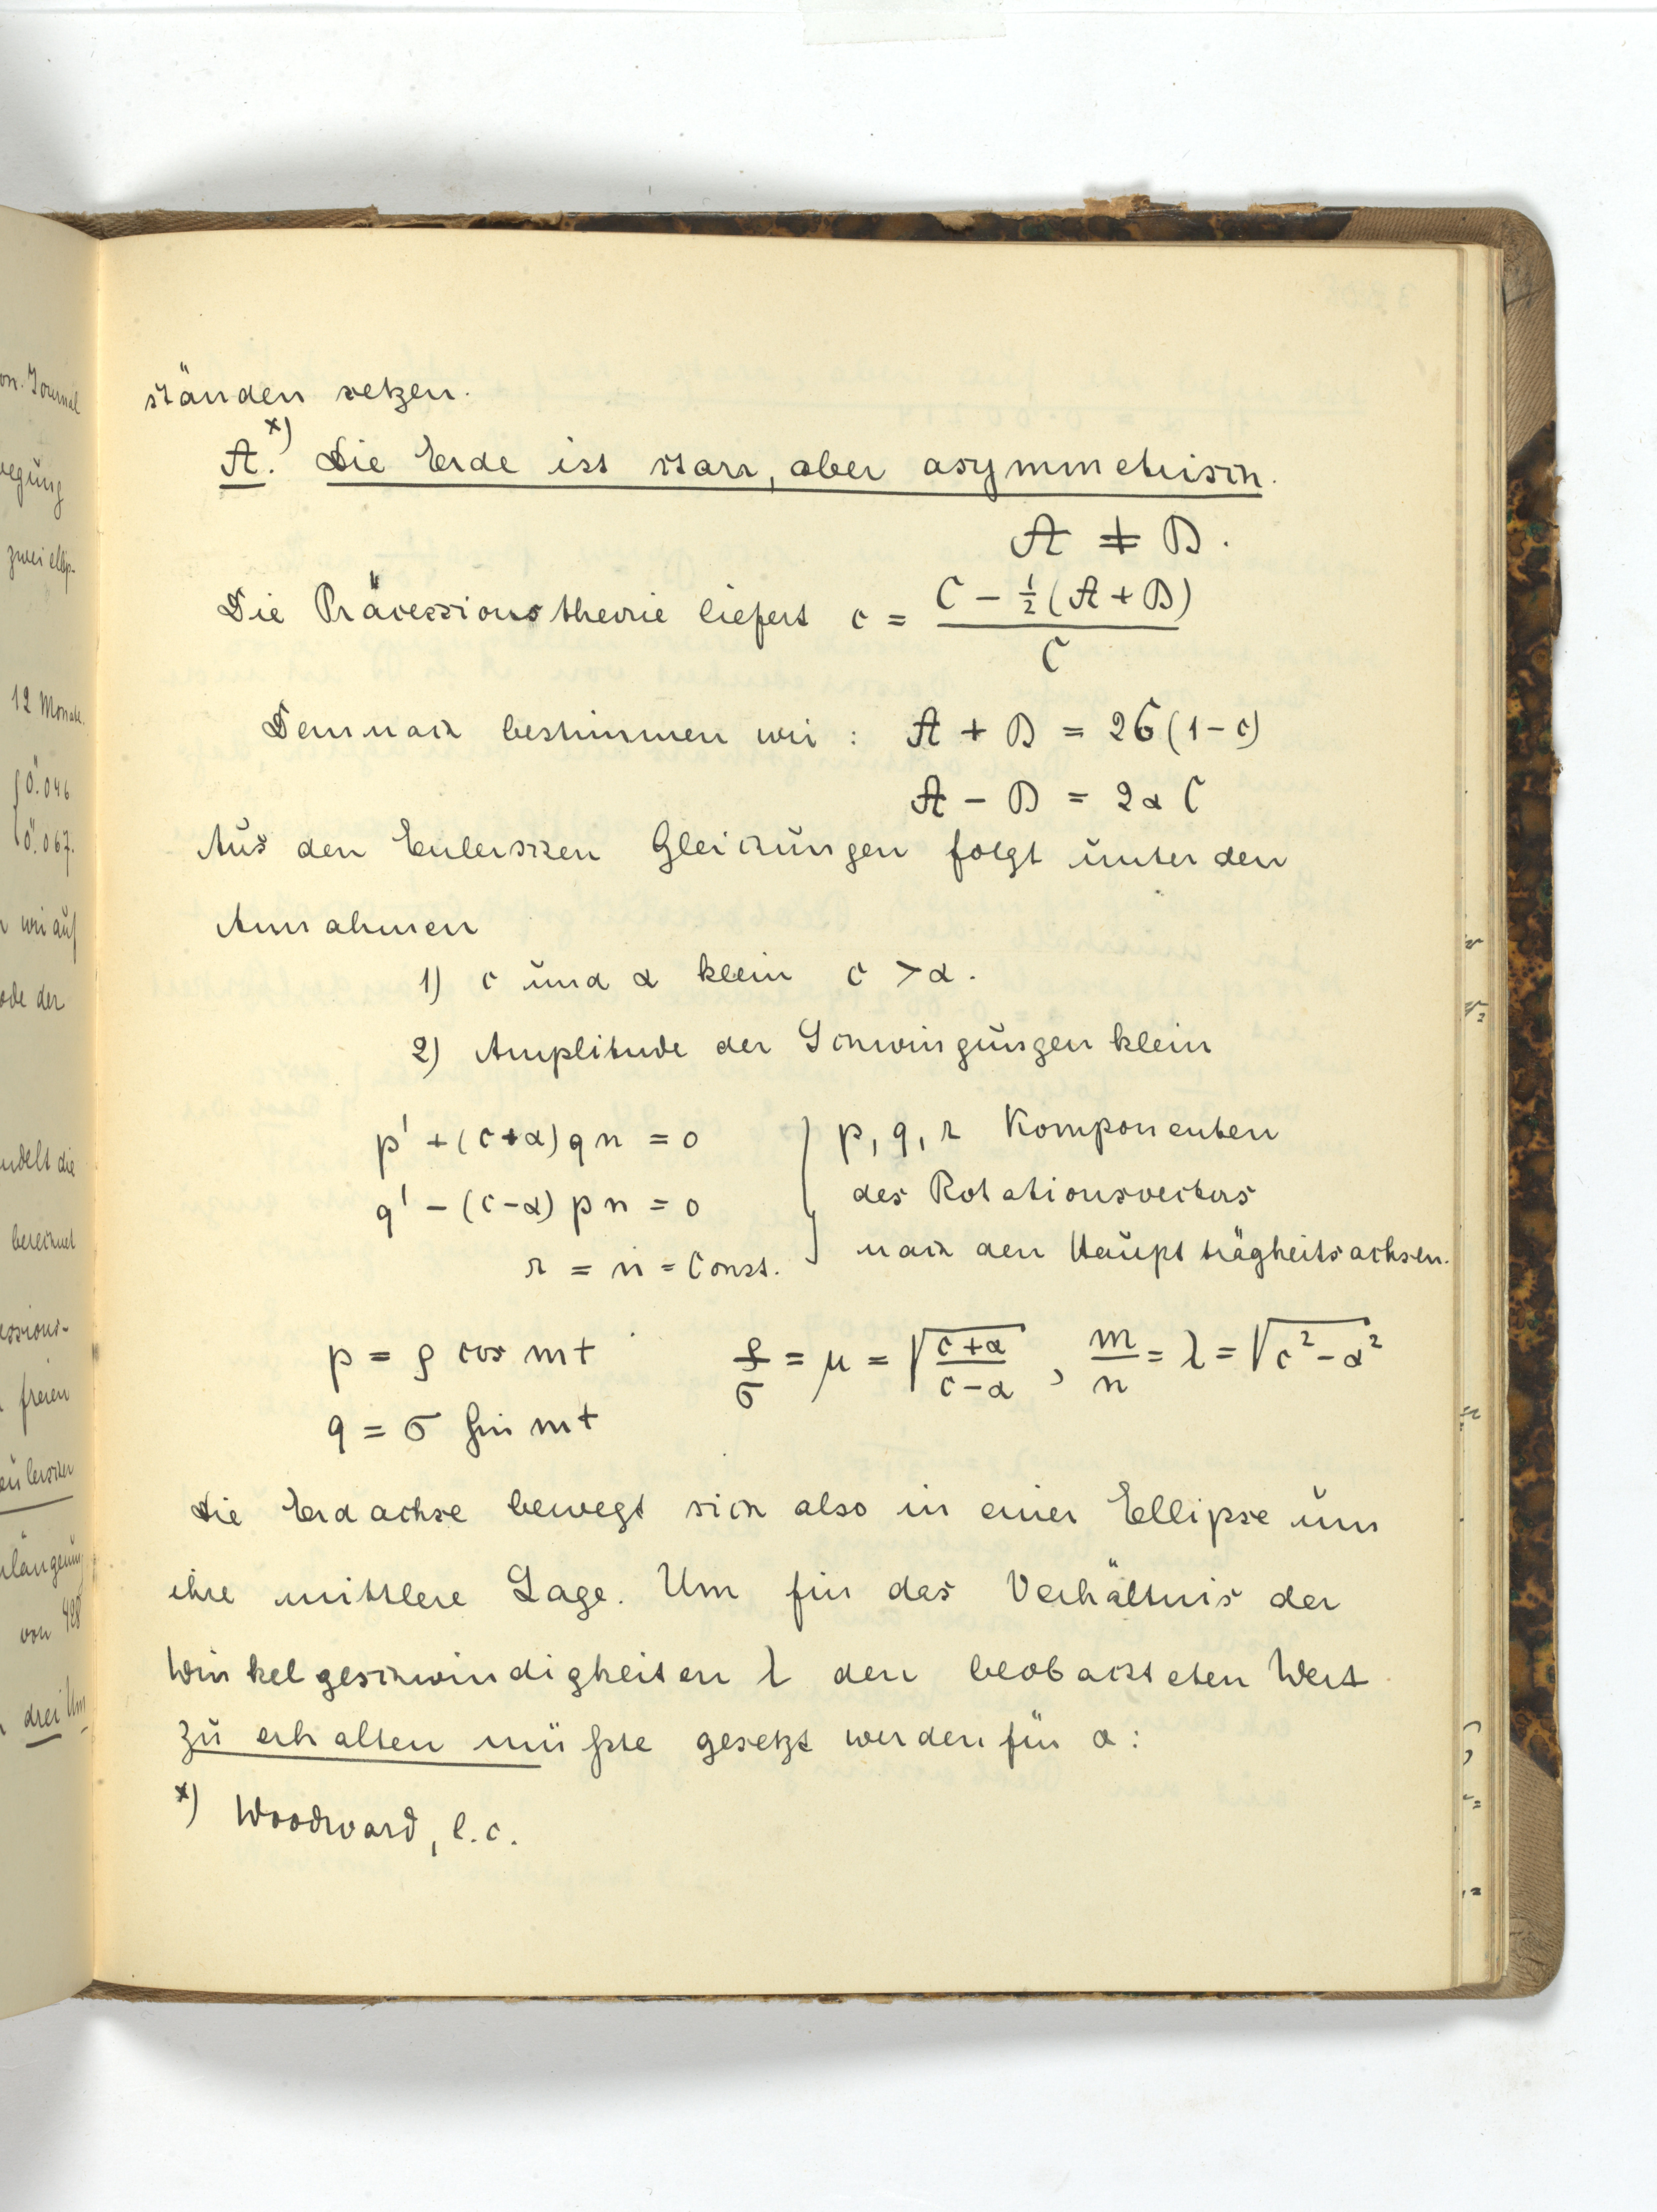 on. Journal
egung
zwei ellip-
12 Monate.
0".046
0".067.
wir auf
ode der
ndelt die
berechnet
essions-
freien
eulerschen
längerung
von 428
drei Um
ständen setzen.
A.x) Die Erde ist starr, aber asymmetrisch.
A ≠ B.
Die Präcessionstheorie liefert c = (C − ½(A + B)) / C
Demnach bestimmen wir : A + B = 2C(1−c)
A − B = 2α C
Aus den Eulerschen Gleichungen folgt unter den
Annahmen
1) c und α klein c > α.
2) Amplitude der Schwingungen klein
p' + (c+α) q n = 0 } p, q, r Komponenten
q' − (c−α) p n = 0 des Rotationsvectors
r = n = Const. nach den Hauptträgheitsachsen.
p = ρ cos mt ρ/σ = μ = √((c+α)/(c−α)) , m/n = λ = √(c²−α²)
q = σ sin mt
Die Erdachse bewegt sich also in einer Ellipse um
ihre mittlere Lage. Um für das Verhältnis der
Winkelgeschwindigkeiten λ den beobachteten Wert
zu erhalten müßte gesetzt werden für α :
x) Woodward, l.c.